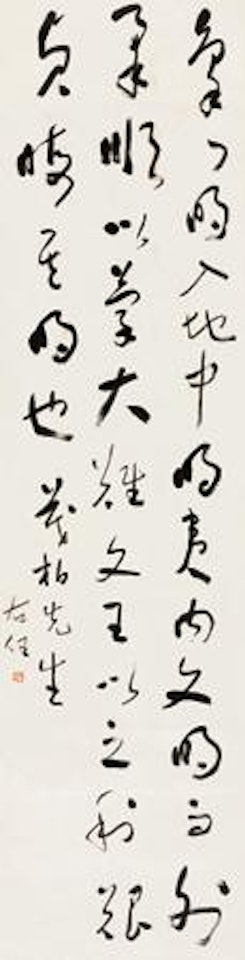 彖曰明入地中明夷內文明而外
柔順以蒙大難文王以之利艱
貞晦其明也 茂柏先生
右任